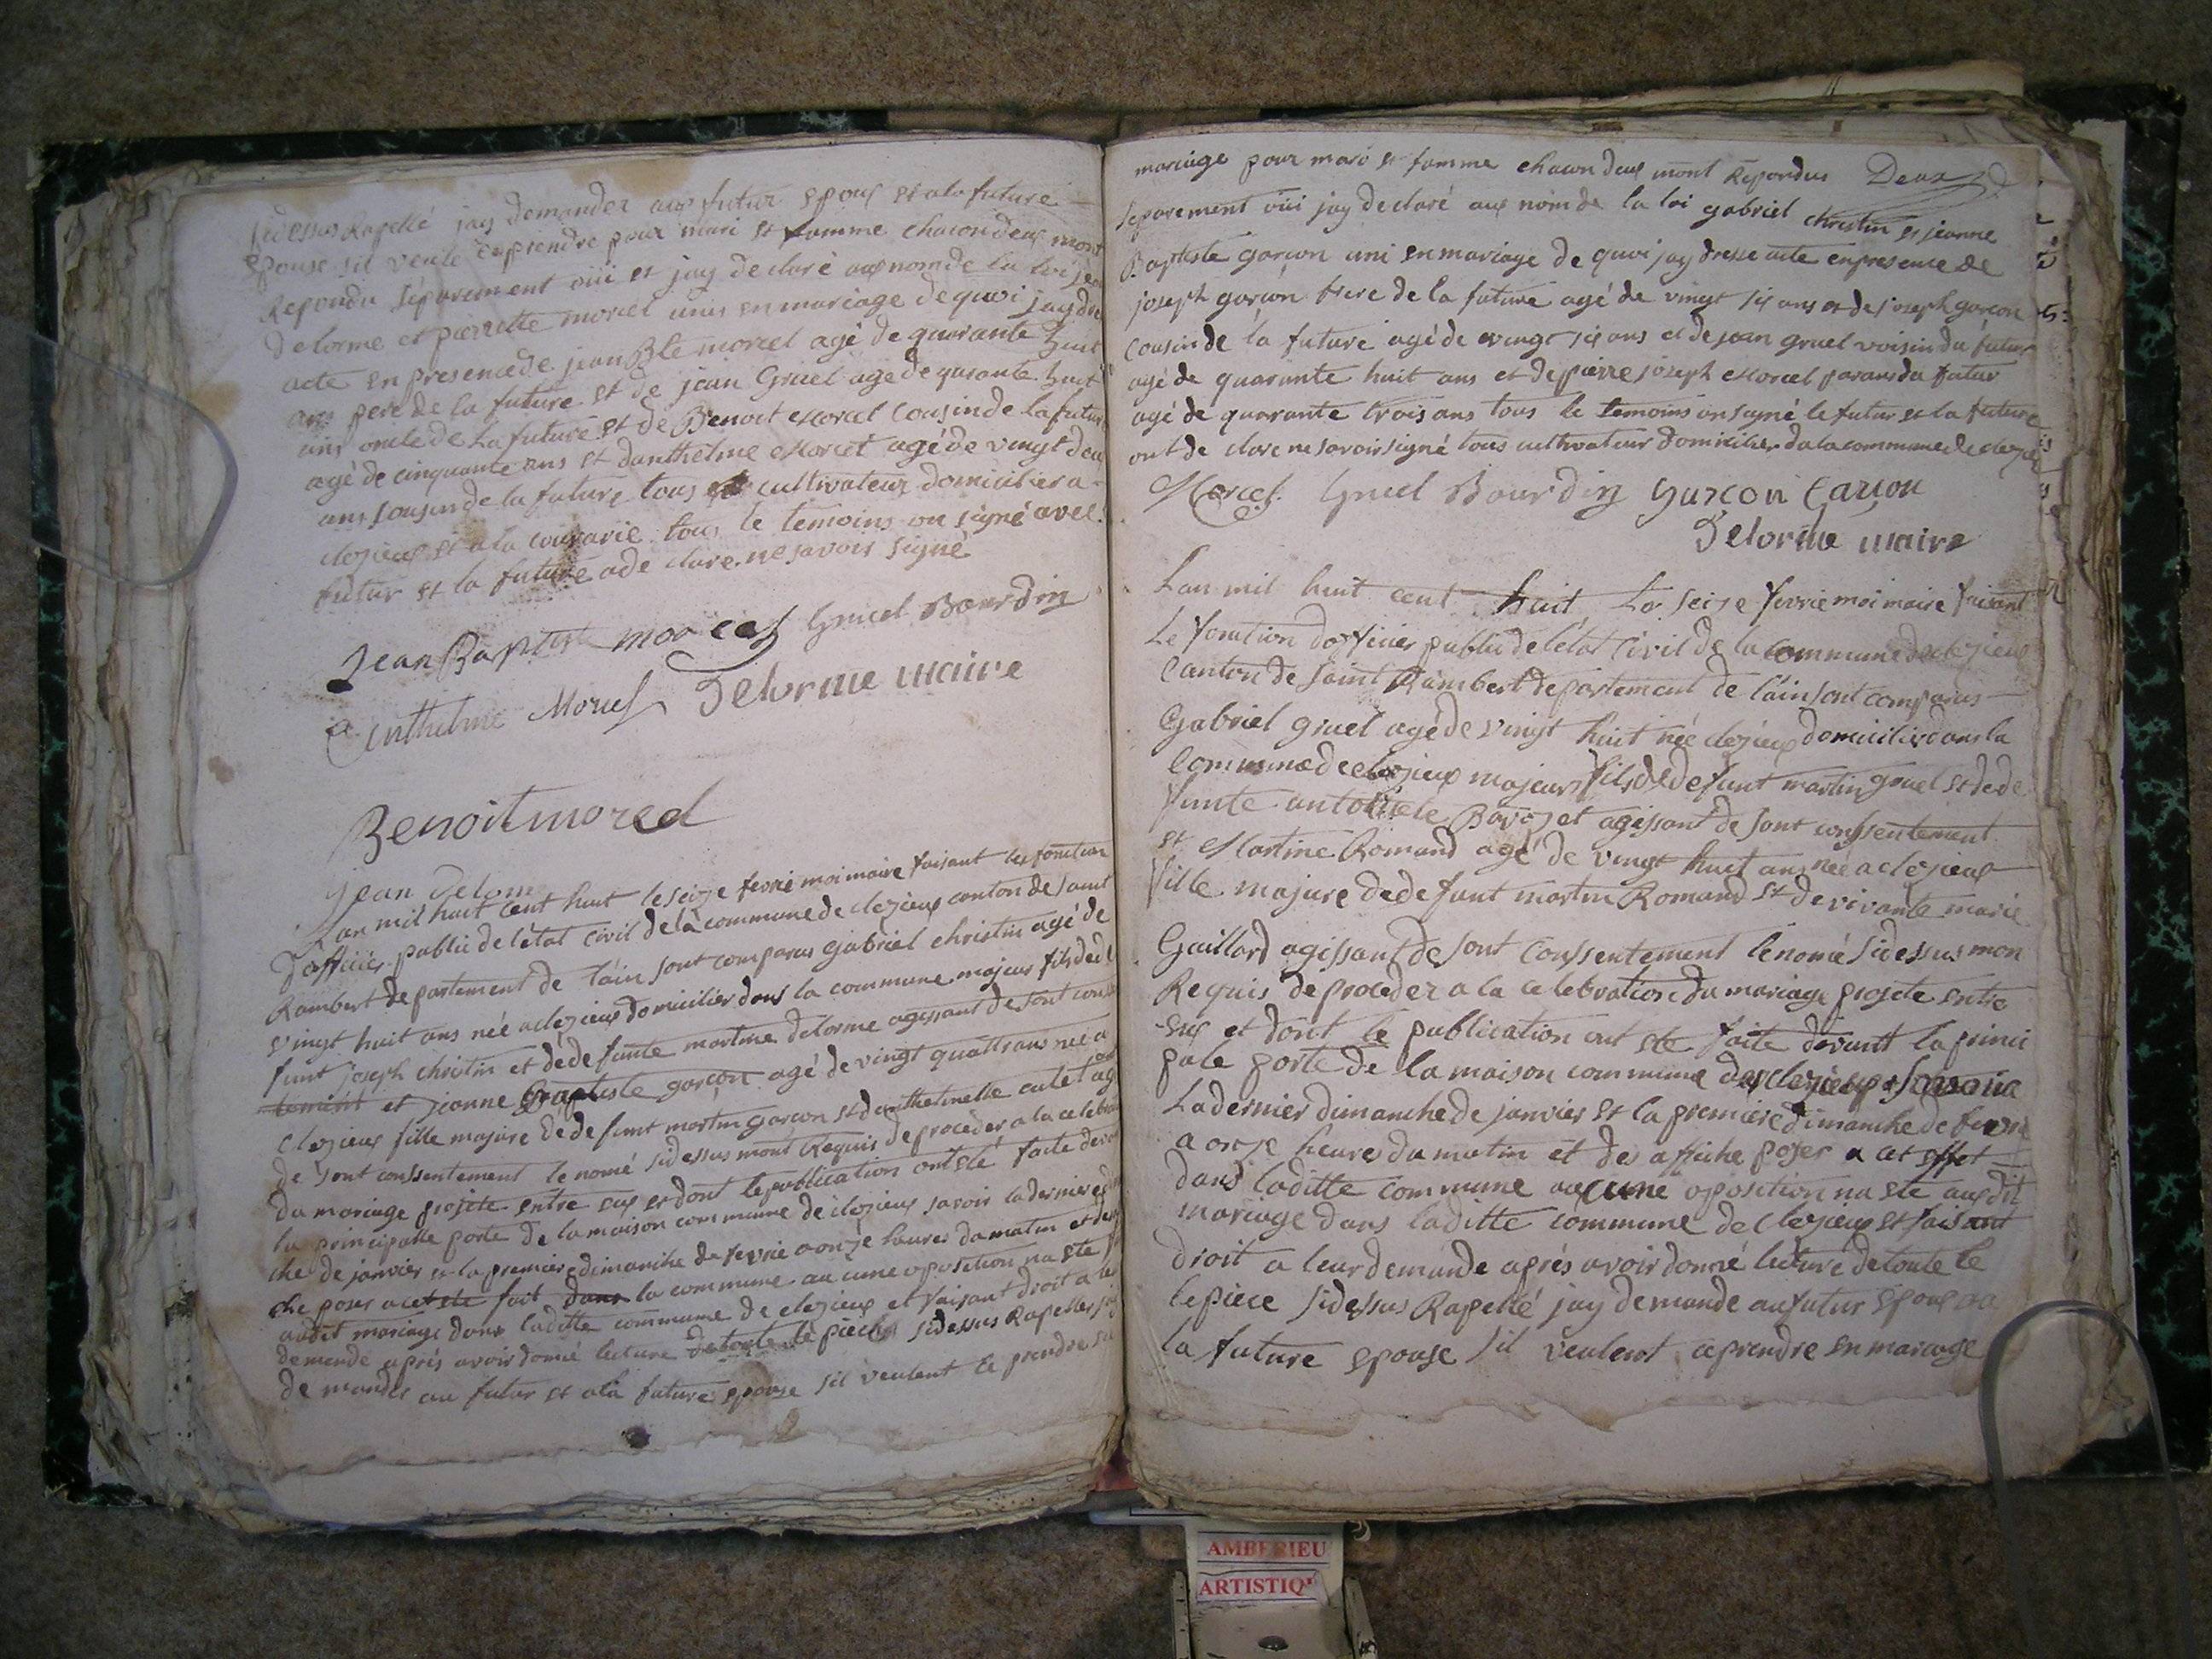 sidessus Rapellé jay demander aux futur epoux et a la future
epouse sil veule ce prendre pour mari et famme chacon deux mont
Repondu séparement oüi et jay declaré aux nom de la loi jean
delorme et pierrette morcel unis en mariage de quoi jay dre
acte en presence de jean Bte morcel agé de quarante huit
ans pere de la future et de jean Gruel age de quarante huit
ans oncle de la future et de Benoit Morcel Cousin de la future
agé de cinquante ans et danthelme Morcel agé de vingt deu
ans Cousin de la future tous cultivateur domicilier a
clezieux et a la couvarie tous le temoins on signé avec
futur et la future a de clare ne savoir signé
Jean Baptiste morcel Gruel Bourdin
anthelme Morcel Delorme maire
Benoit morcel
jean delorme
Lan mil huit cent huit le seize fevrié moi maire faisant les fonction
dofficier public de létat civil de la commune de clezieux canton de saint
Rambert departement de láin sont comparus gabriel christin agé de
vingt huit ans née a clezieux domicilier dans la commune majeur fils de de
funt joseph christin et de de funte martine delorme agissant de sont conse
tement et jeanne Baptiste garçon agé de vingt quatt ans née a
clezieux fille majure de de funt martin garçon et danthelmette catet ag
de sont conssentement le nomé sidessus mont Requis de proceder a la celebra
du mariage projete entre eux et dont le publication ont eté faite deva
la principalle porte de la maison commune de clezieux savoir la dernier di
che de janvier et la premiere dimanche de fevrié a onze heures du matin et des
che poser a cet ete fait dans la commune aucune oposition na ete
audit mariage dans laditte commune de clezieux et faisant droit a le
demande aprés avoir donné lecture de toute le pieces sidessus Rapelles jay
demander au futur et a la future epouse sil veulent ce prendre en
mariage pour mari et famme chacon deux mont Repondus Deux
separement oüi jay declaré aux nom de la loi gabriel christin et jeanne
Baptiste garçon uni en mariage de quoi jay dresse acte en presence de
joseph garçon frere de la future agé de vingt six ans et de joseph garçon
Cousin de la future agé de vingt six ans et de jean gruel voisin du futur
agé de quarante huit ans et de pierre joseph Morcel parans du futur
agé de quarante trois ans tous le temoins on signé le futur et la future
ont de clare ne savoir signé tous cultivateur domicilier da la commune de clezieu
Morcel Gruel Bourdin Garçon Garçon
Delorme maire
Lan mil huit cent huit Le seize fevrié moi maire faisant
Le fonction dofficier public de létat Civil de la commune de clezieux
Canton de saint Rambert departement de láin sont comparus
Gabriel gruel agé de vingt huit née clezieux domicilier dans la
Commune de clezieux majeur fils de defunt martin gruel et de de
funte antoinete Bavoz et agissant de sont conssentement
et Martine Romand agé de vingt huit ans née a clezieux
fille majure de de funt martin Romand et de vivante marie
Gaillard agissant de sont Conssentement le nomé sidessus mon
Requis de proceder a la celebration du mariage projete entre
eux et dont le publication ont ete faite devant la princi
pale porte de la maison commune de clezieux savoir
La dernier dimanche de janvier et la premiere dimanche de fevrié
a onze heures du matin et des affiche poser a cet effet
dans laditte commune aucune oposition na ete audit
mariage dans laditte commune de clezieux et faisant
droit a leur demande aprés avoir donné lecture de toute le
le piece sidessus Rapellé jay demande au futur epoux a
la future epouse sil veulent ce prendre en mariage
AMBERIEU
ARTISTIQ